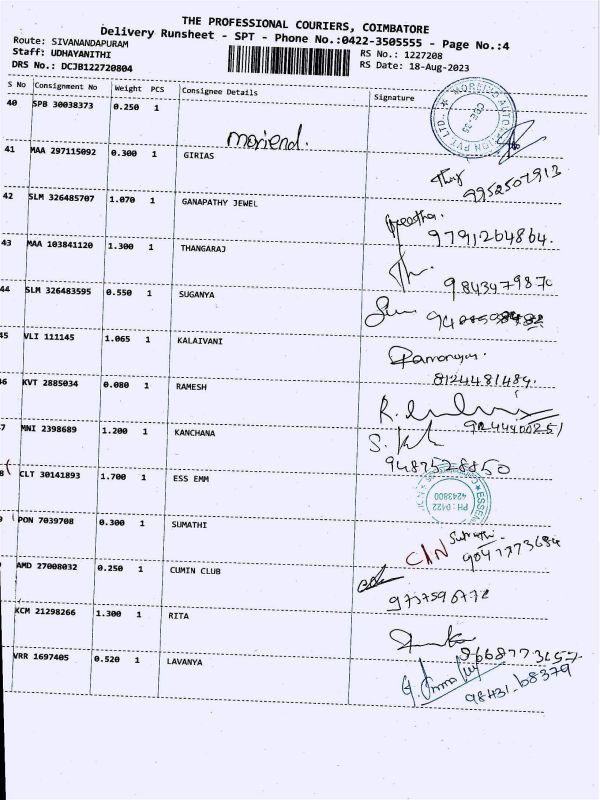 THE PROFESSIONAL COURIERS, COIMBATORE
Delivery Runsheet - SPT - Phone No.:0422-3505555 - Page No.:4
Route: SIVANANDAPURAM
Staff: UDHAYANITHI
RS No.: 1227208
DRS No.: DCJB122720804
RS Date: 18-Aug-2023
S No Consignment No Weight PCS Consignee Details Signature
40 SPB 30038373 0.250 1
41 MAA 297115092 0.300 1 GIRIAS
9952507913
42 SLM 326485707 1.070 1 GANAPATHY JEWEL
9791264864.
43 MAA 103841120 1.300 1 THANGARAJ
9843479870
44 SLM 326483595 0.550 1 SUGANYA
45 VLI 111145 1.065 1 KALAIVANI
8124481489.
46 KVT 2885034 0.080 1 RAMESH
R.
47 MNI 2398689 1.200 1 KANCHANA
S.
9487528850
8 CLT 30141893 1.700 1 ESS EMM
PH : 0422
4243800
PON 7039708 0.300 1 SUMATHI
C/N Sumathi
9047773684
AMD 27008032 0.250 1 CUMIN CLUB
KCM 21298266 1.300 1 RITA
VRR 1697405 0.520 1 LAVANYA
98431-68379